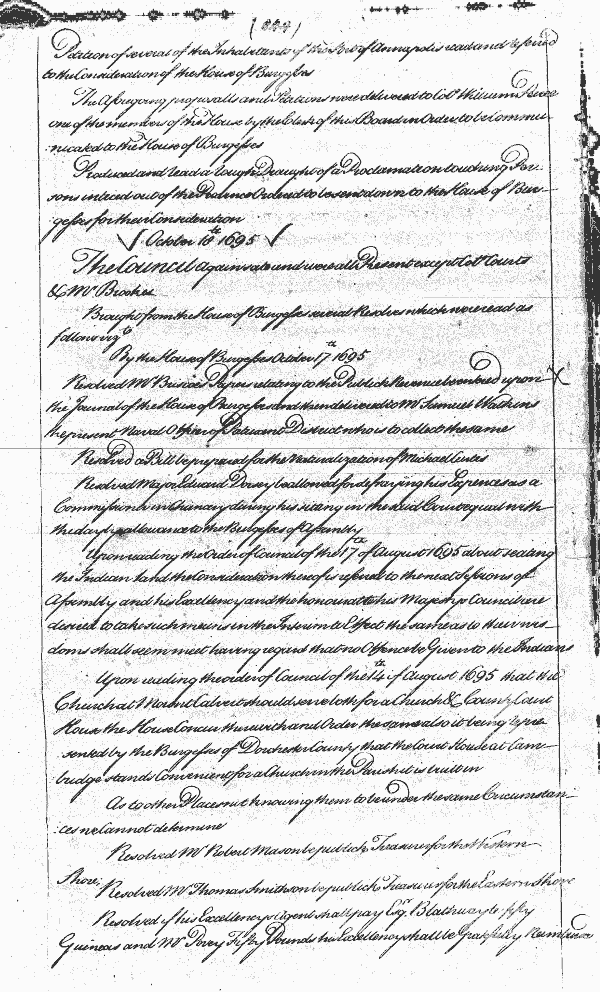 Petition of several of the Inhabitants of the Port of Annapolis read and referred
to the Consideration of the House of Burgesses
The aforegoing proposalls and Petitions were delivered to Coll William
one of the members of the House by the Clerk of this Board in Order to be Commu-
nicated to the House of Burgesses
Produced and read a rough Draught of a Proclamation touching Per-
sons inticed out of the Province Ordered to be sent down to the House of Bur-
gesses for their Consideration
October 18th 1695
The Council again sate and were all Present except Coll Courts
& Mr Brooke
Brought from the House of Burgesses several Resolves which were read as
following Vizt
By the House of Burgesses October 17th 1695
Resolved Mr Paper relating to the Publick Revenue be entred upon
the Journal of the House of Burgesses and then delivered to Mr Samuel Watkins
the present Naval Officer of Patuxent District who is to collect the same
Resolved a Bill be prepared for the Naturalization of Michael
Resolved Major Edward Dorsey be allowed for defraying his Expences as a
Commissioner in Chancery during his sitting in the said Court equal with
the days allowance to the Burgesses of Assembly
Upon reading the Order of Council of the 17th of August 1695 about seating
the Indian Land the Consideration thereof is referred to the next Sessions of
Assembly and his Excellency and the honourable his Majestys Council are
desired to take such measures in the Interim to Effect the same as to their wis-
doms shall seem meet having regard that no Offence be Given to the Indians
Upon reading the order of Council of the 14th of August 1695 that the
Church at Mount Calvert should serve both for a Church & County Court
House the House Concur therewith and Order the same also it being repre
sented by the Burgesses of Dorchester County that the Court House at Cam-
bridge stands Convenient for a Church in the Parish it is built in
As to other Places not knowing them to be under the same Circumstan-
ces we Cannot determine
Resolved Mr Robert Mason be publick Treasurer for the Western
Shore;
Resolved Mr Thomas Smithson be publick Treasurer for the Eastern Shore
Resolved if his Excellencys Agent shall pay Esqr Blathwayte fifty
Guineas and Mr Povey Fifty Pounds his Excellency shall be gratefully